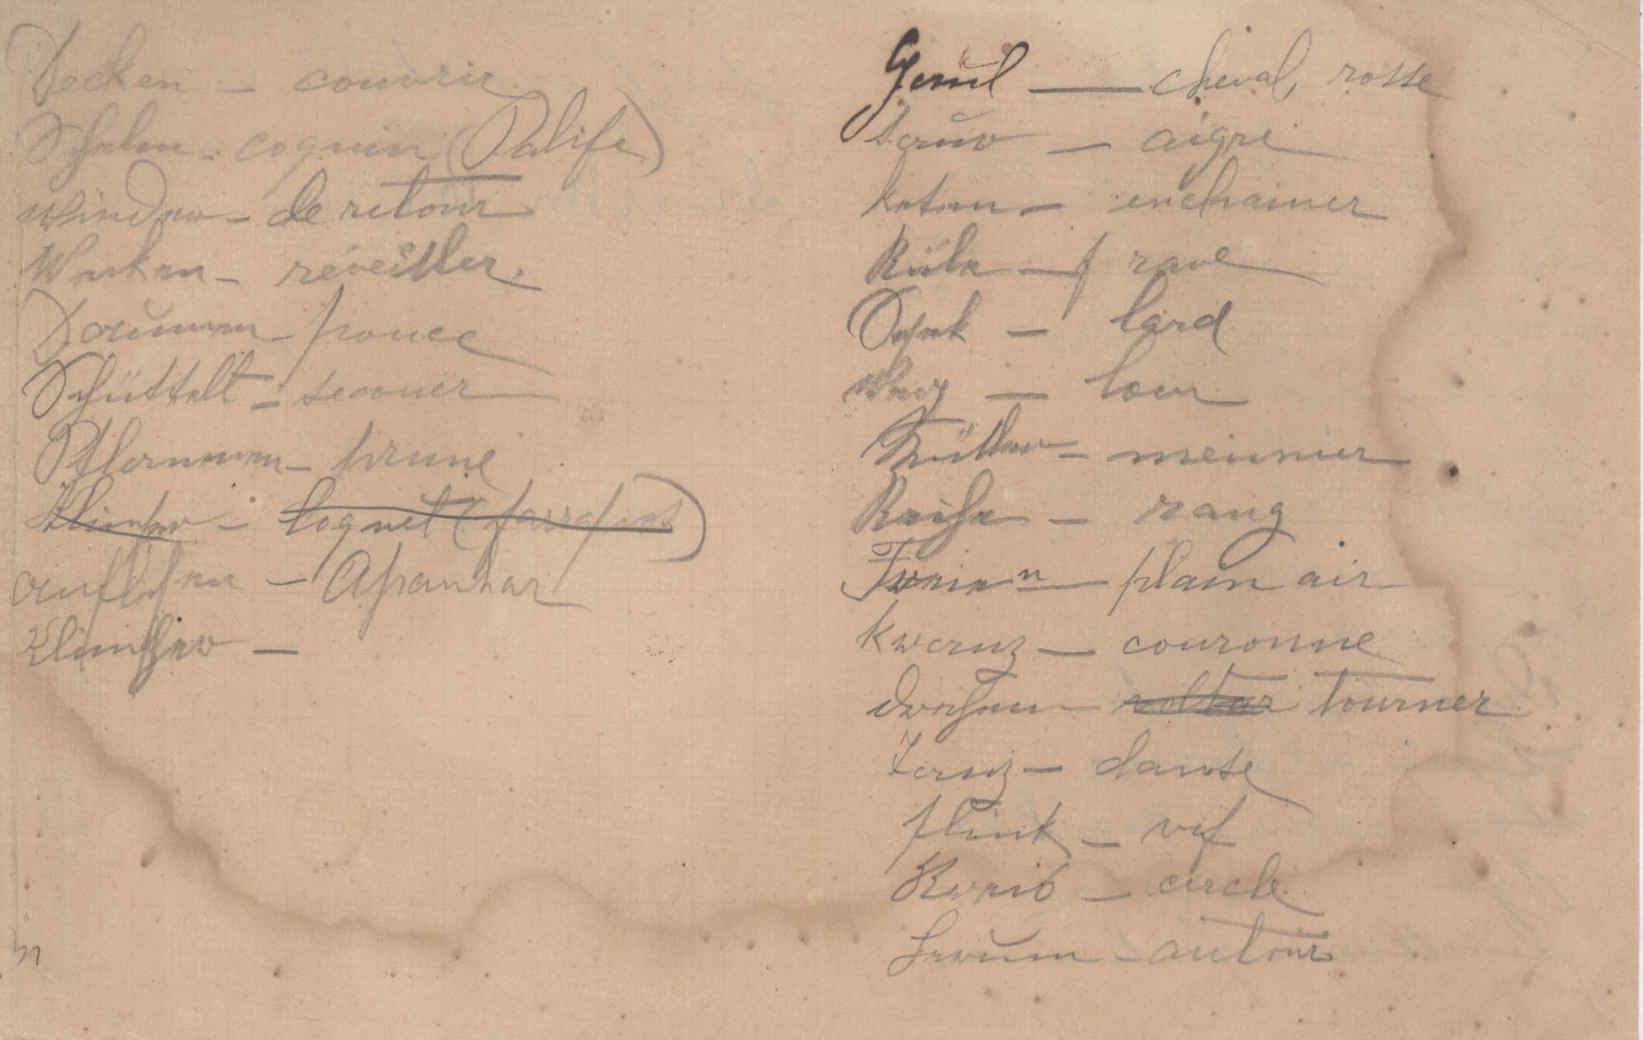 Decken – couvrir
Schelm – coquin (Patife)
wieder – de retour
Wecken – réveiller.
Daumen – pouce
Schüttelt – secouer
Pflaumen – prune
Klimper – loquet
aufheben – Apanhar
n
Gaul — cheval, rosse
sauer – aigre
ketten – enchainer
Rübe – f rave
Speck – lard
Weg – loin
Müller – meunier
Reihe – rang
Freien – plain air
Kranz – couronne
drehen – voltar tourner
Tanz – danse
flink – vif
Kreis – circle
herum – autour